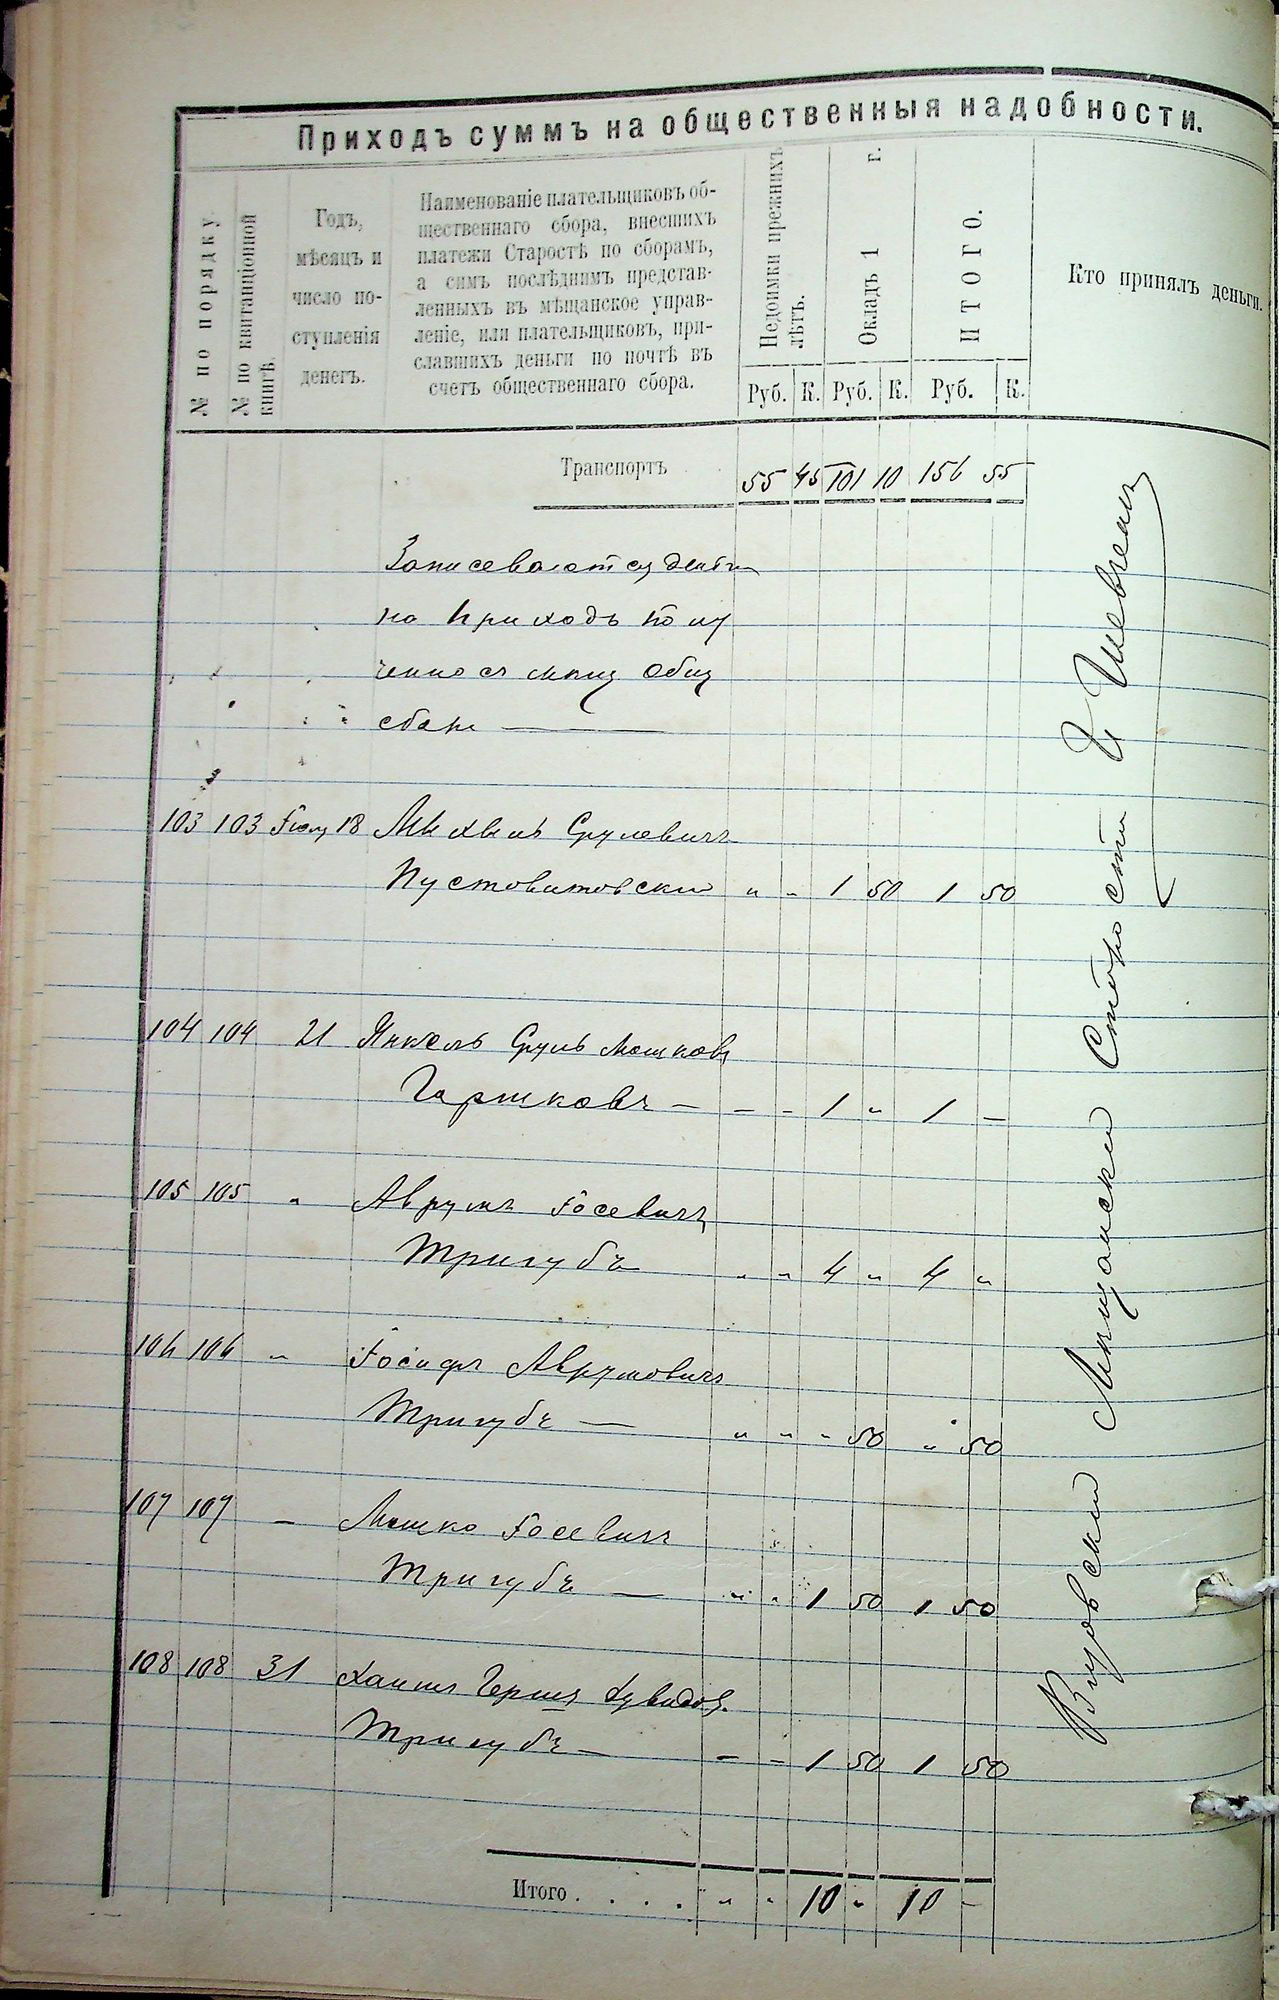 Приходъ суммъ на общественныя надобности.
№ по порядку.
№ по квитанціонной
книгѣ.
Годъ,
мѣсяцъ и
число по-
ступленія
денегъ.
Наименованіе плательщиковъ об-
щественнаго сбора, внесшихъ
платежи Старостѣ по сборамъ,
а симъ послѣднимъ представ-
ленныхъ въ мѣщанское управ-
леніе, или плательщиковъ, при-
славшихъ деньги по почтѣ въ
счетъ общественнаго сбора.
Недоимки прежнихъ
лѣтъ.
Окладъ 1 г.
ИТОГО.
Кто принялъ деньги.
Руб. К. Руб. К. Руб. К.
Транспортъ 55 45 101 10 156 55
на приходъ
103 103 18 Срулевичъ
Пустовитовскій „ „ 1 50 1 50
104 104 21 Янкель Сруль Мошковъ
Гаршковъ — — — 1 „ 1 —
105 105 „ Аврумъ Іосевичъ
Тригубъ „ „ 4 „ 4 „
106 106 „ Іосифъ Аврумовичъ
Тригубъ — „ „ „ 50 „ 50
107 107 — Мошко Іосевичъ
Тригубъ — „ „ 1 50 1 50
108 108 31 Хаимъ Герш
Тригубъ — — — 1 50 1 50
Итого . . . . „ „ 10 „ 10 —